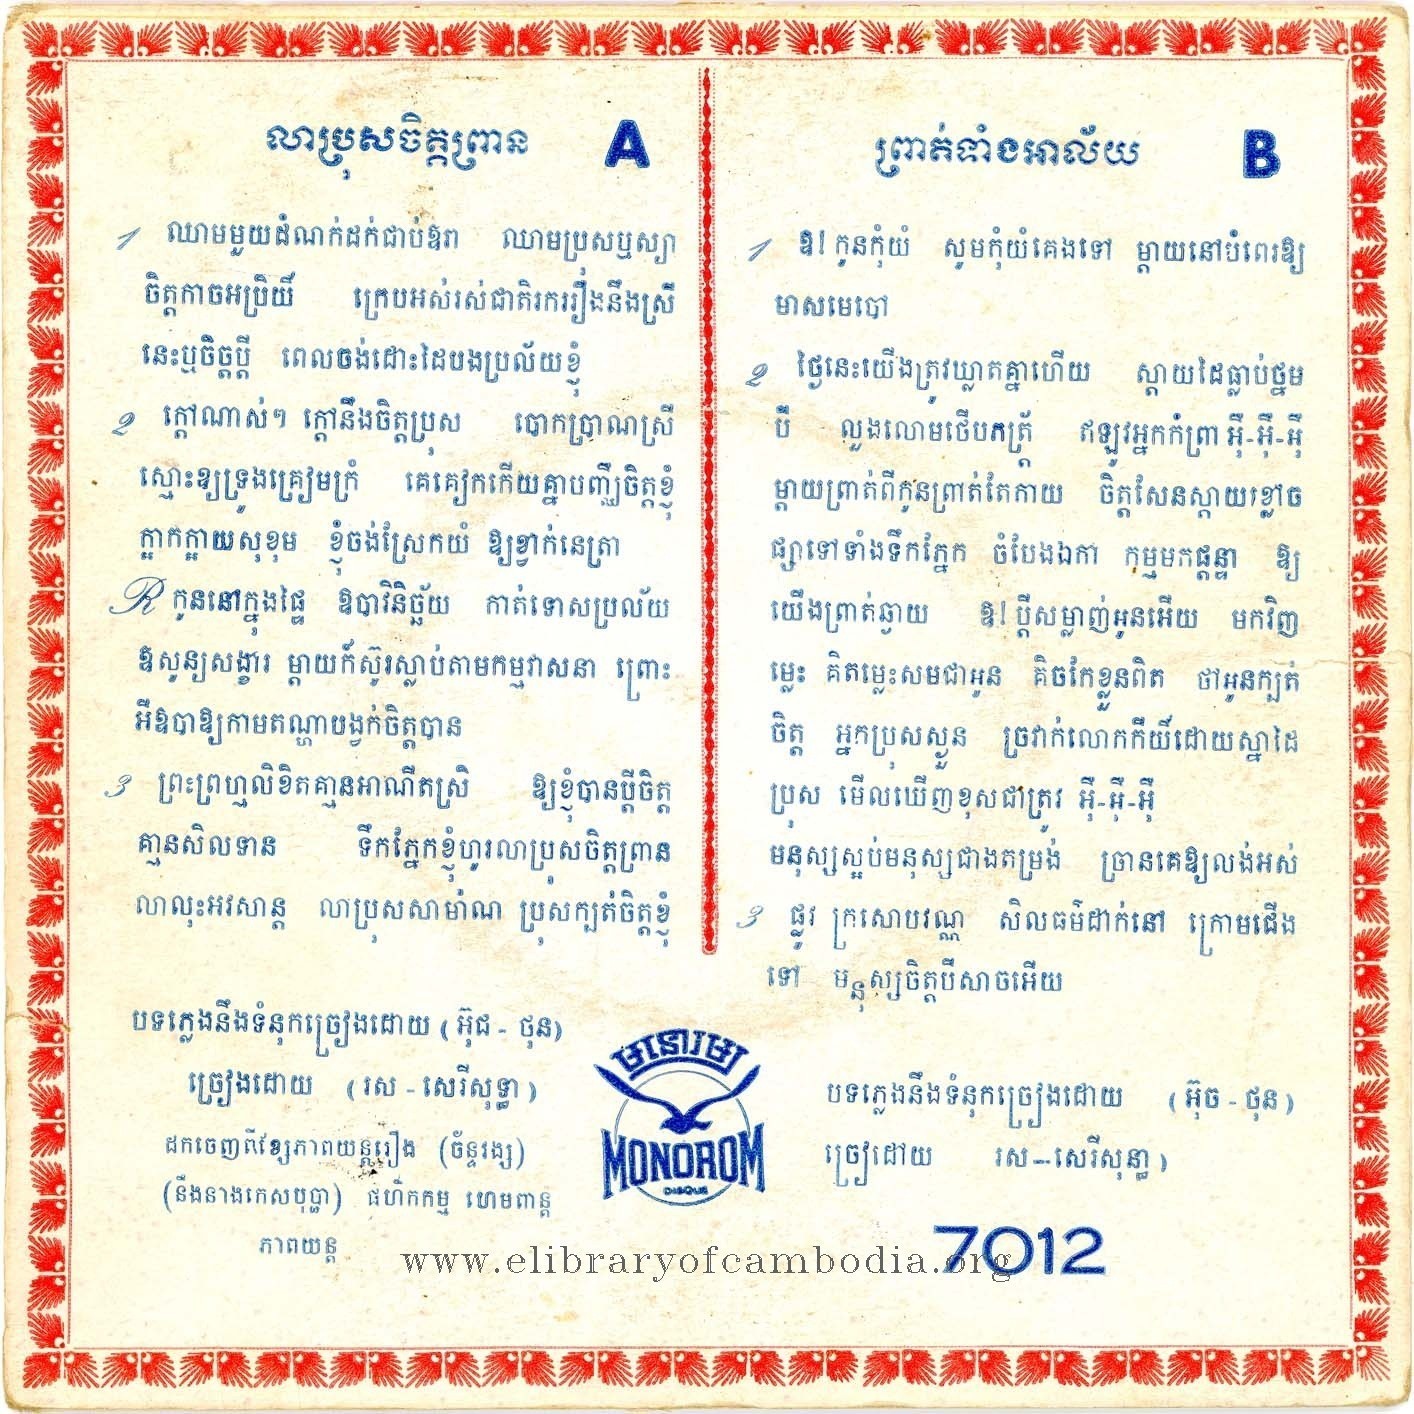 លាប្រុសចិត្តព្រាន A
1 ឈាមមួយដំណក់ដក់ជាប់ឱរា ឈាមប្រុសឬស្យា
ចិត្តកាចអប្រិយ៍ ក្រេបអស់រស់ជាតិរករឿងនឹងស្រី
នេះឬចិច្តប្តី ពេលចង់ដោះដៃបងប្រល័យខ្ញុំ
2 ក្តៅណាស់ៗ ក្តៅនឹងចិត្តប្រុស បោកប្រាណស្រី
ស្មោះឱ្យទ្រូងគ្រៀមក្រំ គេគៀកកើយគ្នាបញ្ឈឺចិត្តខ្ញុំ
ក្អាកក្អាយសុខុម ខ្ញុំចង់ស្រែកយំ ឱ្យខ្វាក់នេត្រា
R កូននៅក្នុងផ្ទៃ ឱបាវិនិច្ឆ័យ កាត់ទោសប្រល័យ
ឱសូន្យសង្ខារ ម្តាយក៏ស៊ូរស្លាប់តាមកម្មវាសនា ព្រោះ
អីឱបាឱ្យកាមតណ្ហាបង្វក់ចិត្តបាន
3 ព្រះព្រហ្មលិខិតគ្មានអាណិតស្រិ ឱ្យខ្ញុំបានប្តីចិត្ត
គ្មានសិលទាន ទឹកភ្នែកខ្ញុំហូរលាប្រុសចិត្តព្រាន
លាលុះអវសាន្ត លាប្រុសសាម៉ាណ ប្រុសក្បត់ចិត្តខ្ញុំ
បទភ្លេងនឹងទំនុកច្រៀងដោយ ( អ៊ុជ - ថុន)
ច្រៀងដោយ ( រស - សេរីសុទ្ធា )
ដកចេញពីខ្សែភាពយន្តរឿង (ច័ន្ទវង្ស)
(នឹងនាងកេសបុប្ផា) ផហិកកម្ម ហេមពាន្ត
ភាពយន្ត
ព្រាត់ទាំងអាល័យ B
1 ឱ! កូនកុំយំ សូមកុំយំគេងទៅ ម្តាយនៅបំពេរឱ្យ
មាសមេបៅ
2 ថ្ងៃនេះយើងត្រូវឃ្លាតគ្នាហើយ ស្តាយដៃធ្លាប់ថ្នម
បី លួងលោមថើបភត្រ្ក ឥឡូវអ្នកកំព្រា អ៊ឺ-អ៊ឺ-អ៊ឺ
ម្តាយព្រាត់ពីកូនព្រាត់តែកាយ ចិត្តសែនស្តាយខ្លោច
ផ្សាទៅទាំងទឹកភ្នែក ចំបែងឯកា កម្មមកផ្តន្ទា ឱ្យ
យើងព្រាត់ឆ្ងាយ ឱ! ប្តីសម្លាញ់អូនអើយ មកវិញ
ម្លេះ គិតម្លេះសមជាអូន គិចកែខ្លួនពិត ថាអូនក្បត់
ចិត្ត អ្នកប្រុសស្ងួន ច្រវាក់លោកកីយ៍ដោយស្នាដៃ
ប្រុស មើលឃើញខុសជាត្រូវ អ៊ឺ-អ៊ឺ-អ៊ឺ
មនុស្សស្អប់មនុស្សជាងតម្រង់ ច្រានគេឱ្យលង់អស់
3 ផ្លូវ ក្រសោបវណ្ណ សិលធម៌ដាក់នៅ ក្រោមជើង
ទៅ មនុស្សចិត្តបីសាចអើយ
បទភ្លេងនឹងទំនុកច្រៀងដោយ ( អ៊ុច - ថុន )
ច្រៀដៅយ រស-សេរីសុនា្ធ )
មនោរម្យ
MONOROM
DISQUE
7012
www.elibraryofcambodia.org